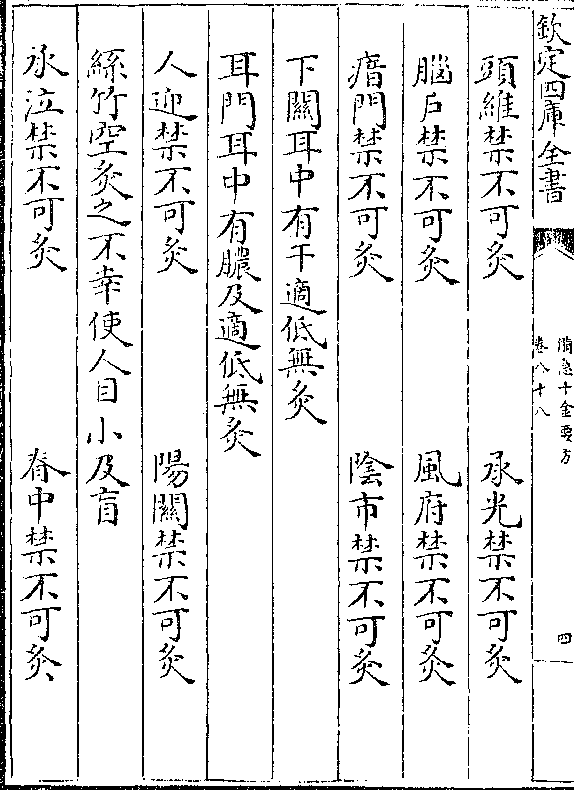 欽定四庫全書
備急千金要方
卷八十八
四
頭維禁不可灸 承光禁不可灸
腦戶禁不可灸 風府禁不可灸
瘖門禁不可灸 陰市禁不可灸
下關耳中有干適低無灸
耳門耳中有膿及適低無灸
人迎禁不可灸 陽關禁不可灸
絲竹空灸之不幸使人目小及盲
承泣禁不可灸 脊中禁不可灸